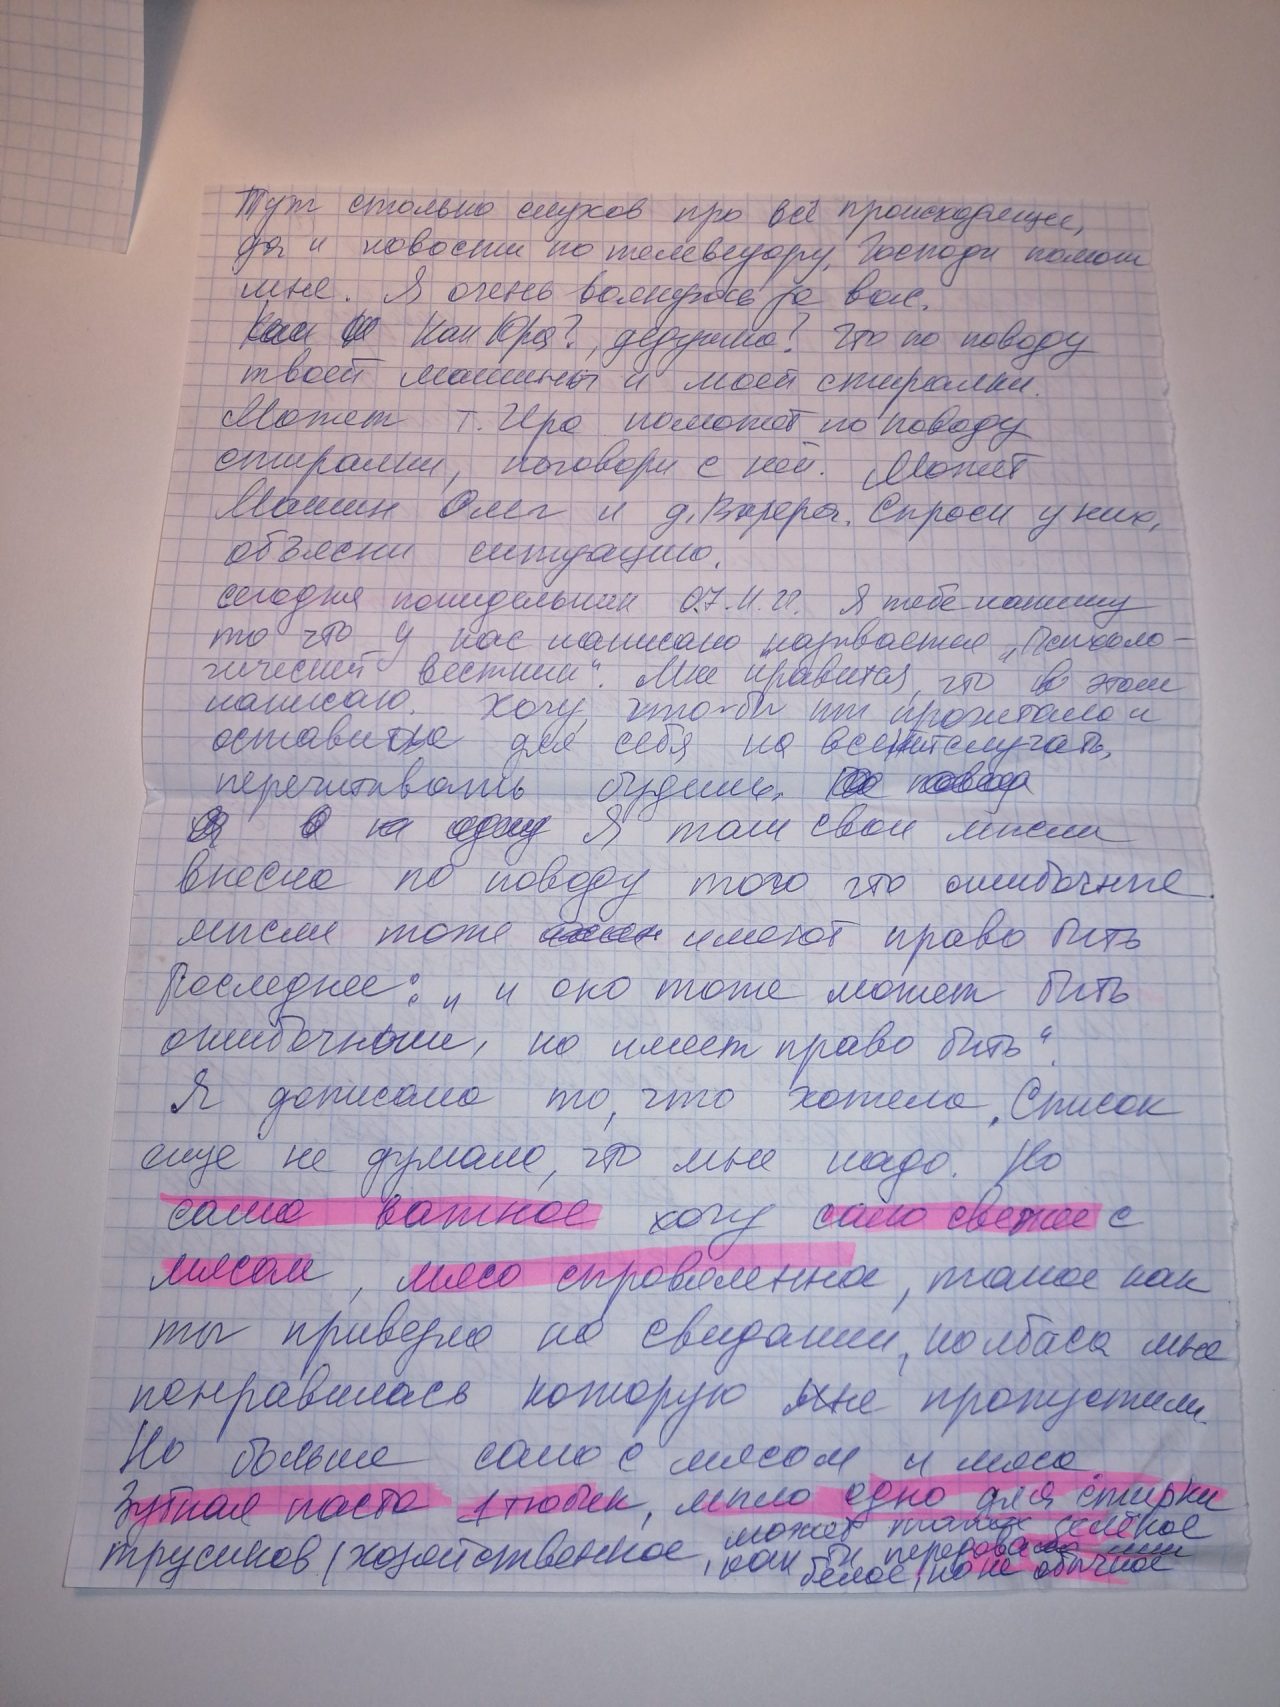 Тут столько слухов про всё происходящее,
да и новости по телевизору, Господи помоги
мне. Я очень волнуюсь за вас.
Как Юра?, дедушка? Что по поводу
твоей машины и моей стиралки.
Может т. Ира поможет по поводу
стиралки, поговори с ней. Может
Машин Олег и д. Валера. Спроси у них,
объясни ситуацию.
сегодня понидельник 07.11.22. Я тебе напишу
то что у нас написано называется "Психоло-
гический вестник". Мне нравится, что в этом
написано. Хочу, что-бы ты прочитала и
оставила для себя на всякий случай,
перечитывать будешь.
Я там свои мысли
внесла по поводу того что ошибочные
мысли тоже имеют право быть
Последнее: "и оно тоже может быть
ошибочным, но имеет право быть".
Я дописала то, что хотела. Список
еще не думала, что мне надо. Но
само важное хочу сало свежее с
мясом, мясо справяленное, такое как
ты привезла на свидании, колбаса мне
понравилась которую не пропустили.
Но больше сало с мясом и мяса
Зубная паста 1 тюбик, мыло одно для стирки
трусиков (хозяйственное, может такое зелёное
как бы передавала или
белое, но не обычное